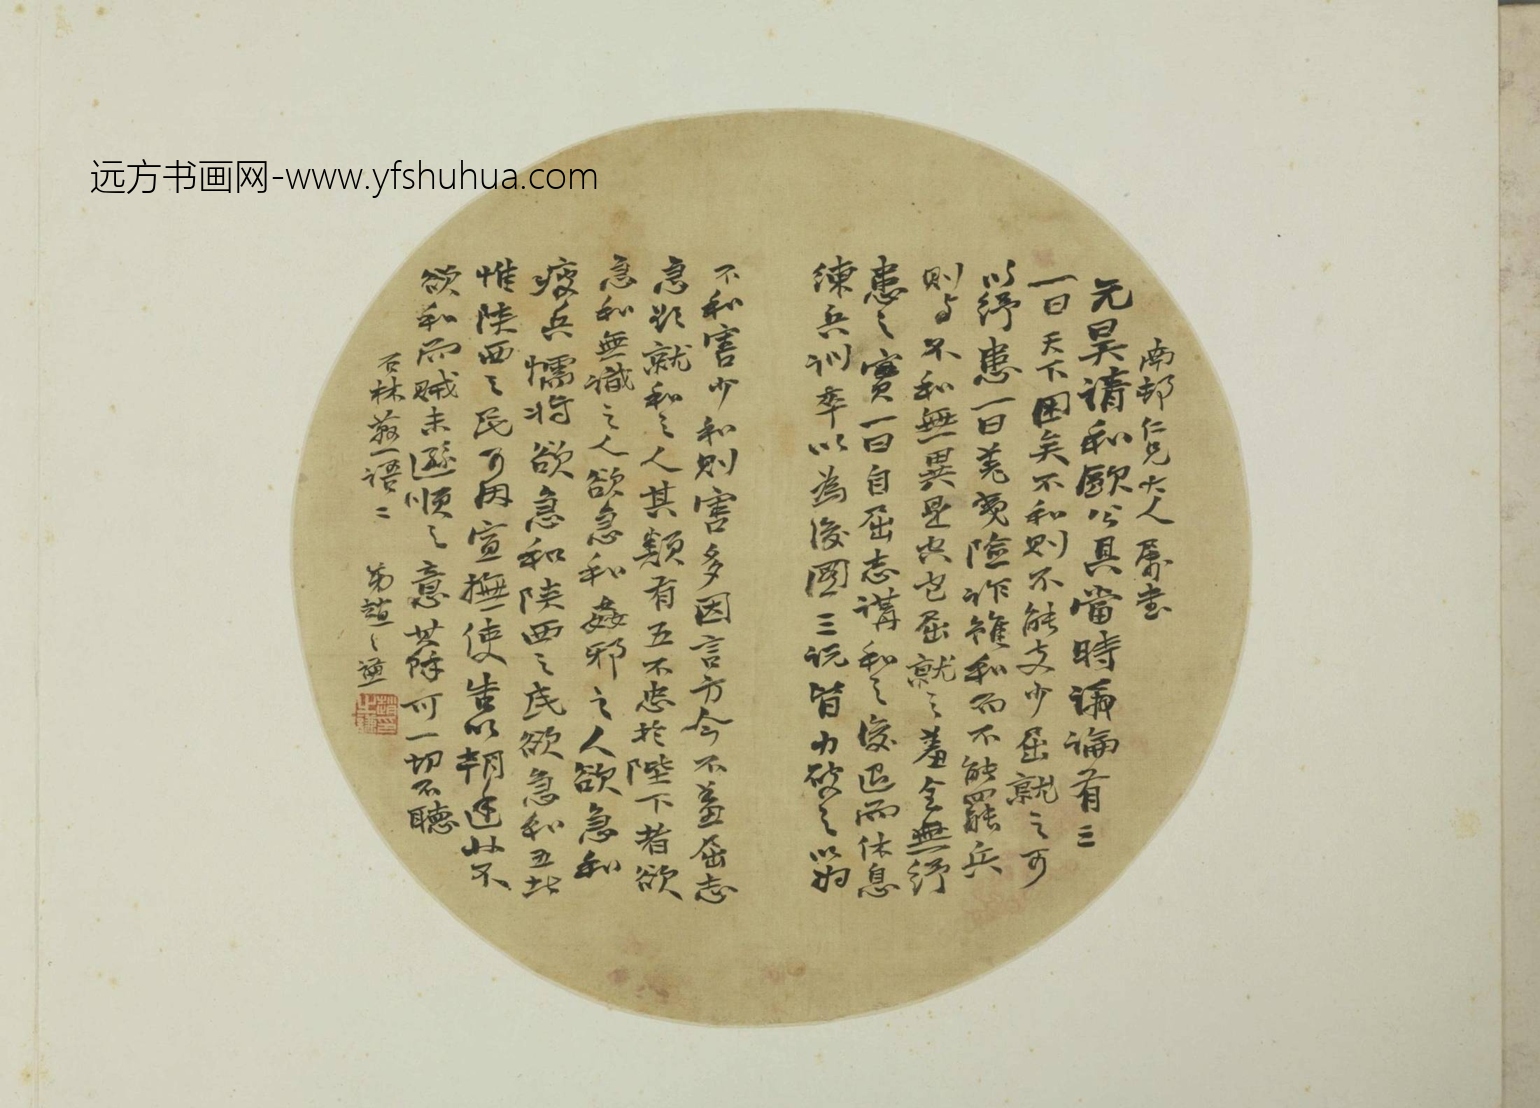 远方书画网-www.yfshuhua.com
南邨仁兄大人属书
元昊請和歐公具當時議論有三
一曰天下困矣不和則不能支少屈就之可
以紓患一曰羌戎險詐雖和而不能罷兵
則與不和無異是空包屈就之羞全無紓
患之實一曰自屈志講和之後退而休息
練兵訓卒以為後圖三說皆力破之以為
不和害少和則害多因言方今不羞屈志
急欲就和之人其類有五不忠於陛下者欲
急和無識之人欲急和姦邪之人欲急和
疲兵懦將欲急和陝西之民欲急和五者
惟陝西之民可因宣撫使告以朝廷非不
欲和而賊未遜順之意其餘可一切不聽
石林燕語二 弟趙之謙